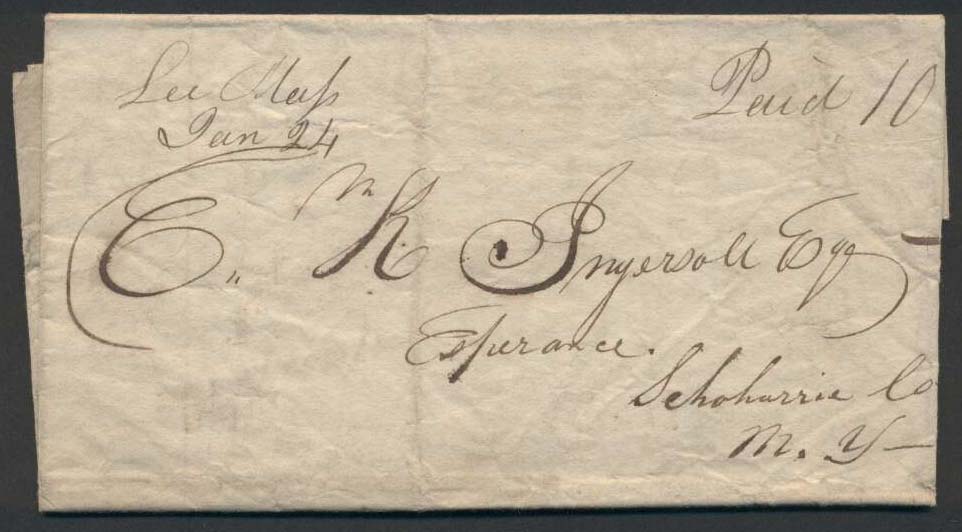 Lee Mass
Jan 24
Paid 10
E,, K. Ingersoll Esq
Esperance.
Schoharrie Co
N. Y